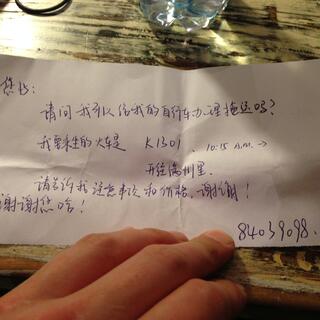 您好:
请问我可以给我的自行车办理拖运吗?
我要乘坐的火车是 K1301. 10:15 a.m. →
开往满州里.
请告诉我注意事项和价格,谢谢!
谢谢您啦!
84039098.